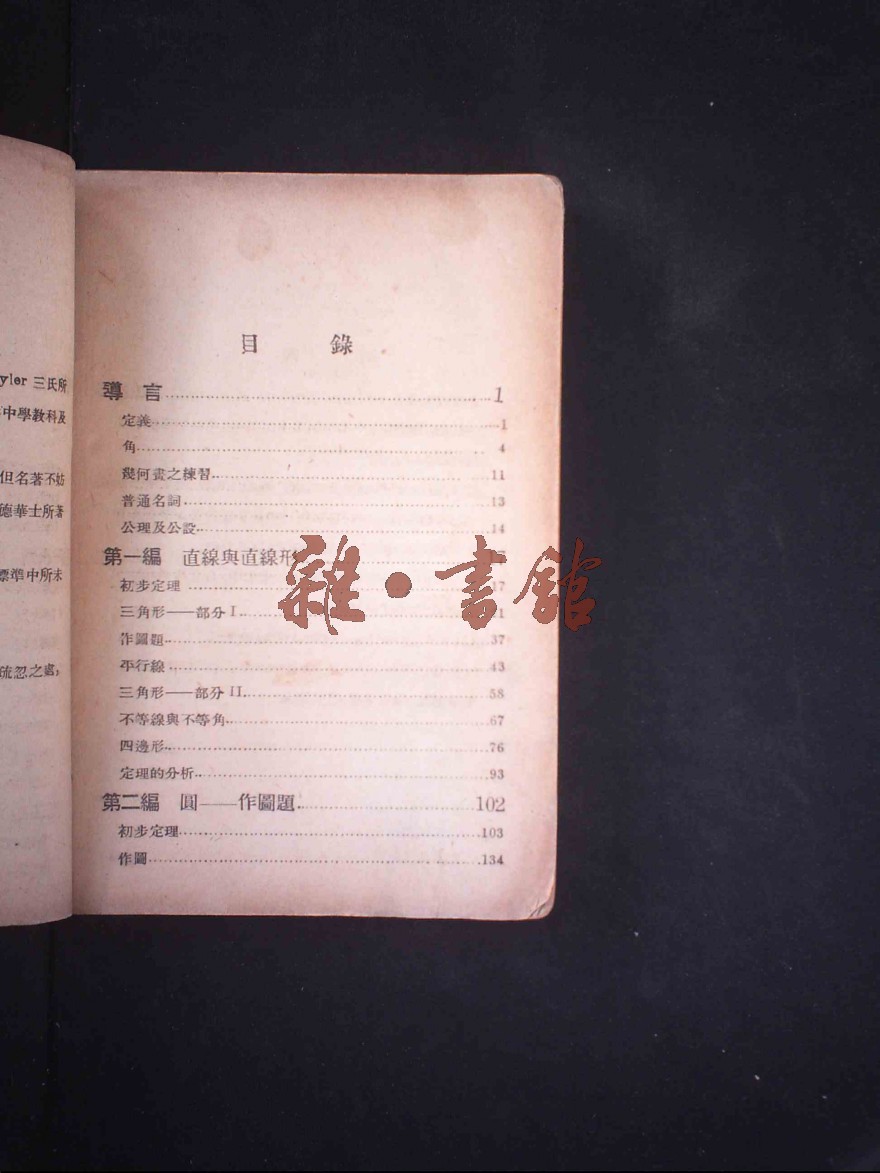 yler 三氏所
中學教科及
但名著不妨
德華士所著
標準中所未
疏忽之處,
目 錄
導 言 1
定義 1
角 4
幾何畫之練習 11
普通名詞 13
公理及公設 14
第一編 直線與直線形
初步定理 17
三角形——部分 I
作圖題 37
平行線 43
三角形——部分 II 58
不等線與不等角 67
四邊形 76
定理的分析 93
第二編 圓——作圖題 102
初步定理 103
作圖 134
雜·書館